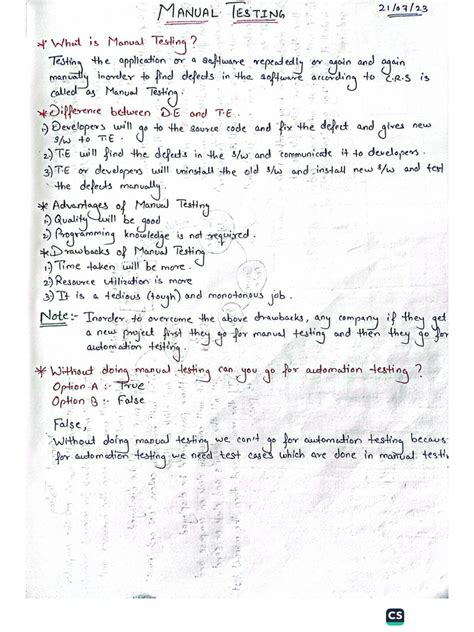 MANUAL TESTING 21/07/23
* What is Manual Testing?
Testing the application or a software repeatedly or again and again
manually inorder to find defects in the software according to C.R.S is
called as Manual Testing.
* Difference between D.E and T.E.
1) Developers will go to the source code and fix the defect and gives new
S/w to T.E.
2) T.E will find the defects in the s/w and communicate it to developers.
3) T.E or developers will uninstall the old s/w and install new s/w and test
the defects manually.
* Advantages of Manual Testing
1) Quality will be good
2) Programming knowledge is not required.
* Drawbacks of Manual Testing.
1) Time taken will be more.
2) Resource Utilization is more
3) It is a tedious (tough) and monotonous job.
Note:- Inorder to overcome the above drawbacks, any company if they get
a new project first they go for manual testing and then they go for
automation testing.
* Without doing manual testing can you go for automation testing?
Option A :- True
Option B :- False
False,
Without doing manual testing we can't go for automation testing becaus
for automation testing we need test cases which are done in manual testin
CS